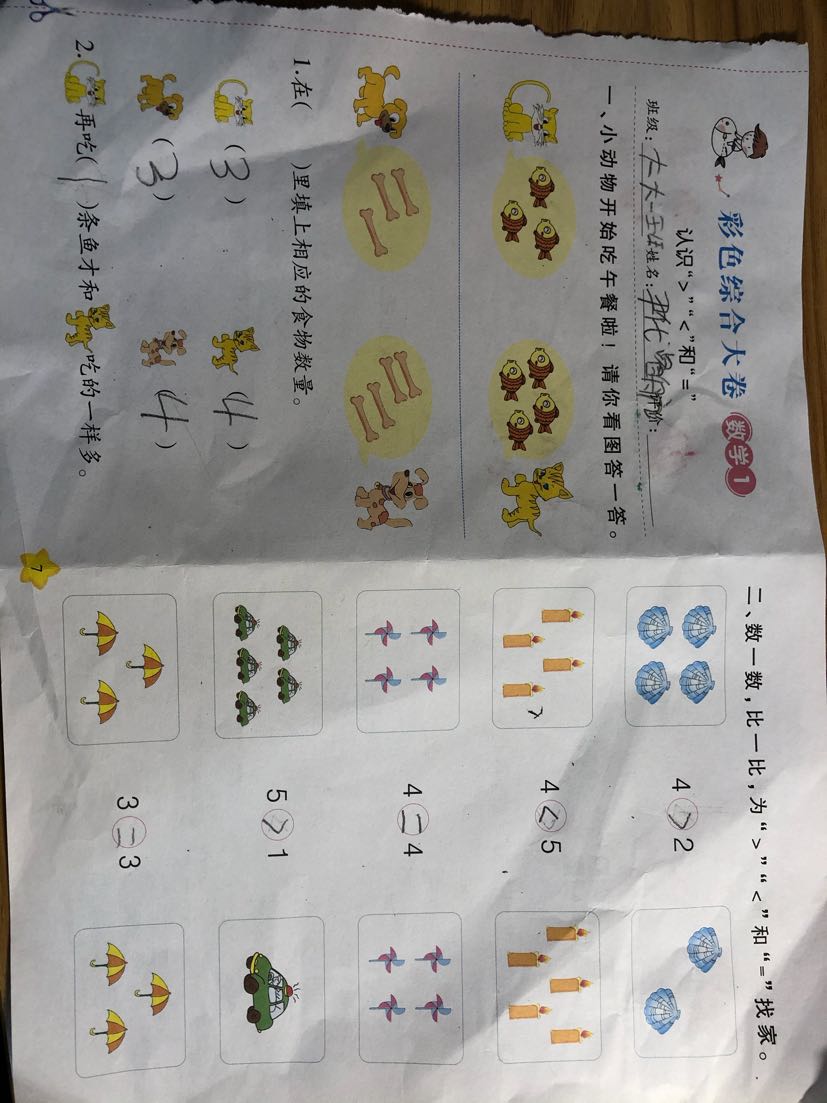 彩色综合大卷 数学1
认识“>”“<”和“=”
班级: 姓名: 评价:
一、小动物开始吃午餐啦!请你看图答一答。
1.在( )里填上相应的食物数量。
(3) (4)
(3) (4)
2. 再吃(1)条鱼才和 吃的一样多。
7
二、数一数,比一比,为“>”“<”和“=”找家。
4 > 2
4 < 5
4 = 4
5 > 1
3 = 3